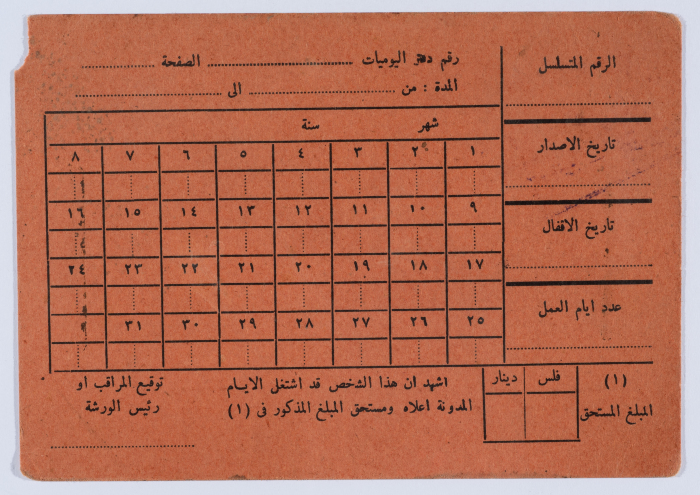 الرقم المتسلسل
رقم دفتر اليوميات الصفحة
المدة : من الى
شهر سنة
تاريخ الاصدار
١ ٢ ٣ ٤ ٥ ٦ ٧ ٨
٩ ١٠ ١١ ١٢ ١٣ ١٤ ١٥ ١٦
تاريخ الاقفال
١٧ ١٨ ١٩ ٢٠ ٢١ ٢٢ ٢٣ ٢٤
عدد ايام العمل
٢٥ ٢٦ ٢٧ ٢٨ ٢٩ ٣٠ ٣١
(١)
المبلغ المستحق
فلس دينار
اشهد ان هذا الشخص قد اشتغل الايـام
المدونة اعلاه ومستحق المبلغ المذكور في (١)
توقيع المراقب او
رئيس الورشة